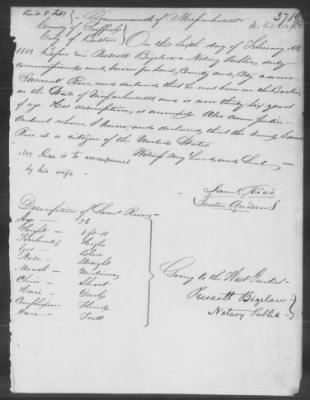 Commonwealth of Massachusetts
County of Suffolk
City of Boston
On this sixth day of February AD
before me Prescott Bigelow, a Notary Public, duly
commissioned and sworn for said County and City, came
Samuel Rice, and declared that he was born in the Boston,
in the State of Massachusetts and is now thirty six years
of age. His description is annexed. Also came Justin
Andrews whom I know, and declared that the said Samuel
Rice is a citizen of the United States
Witness my hand and Seal
Mr Rice is to be accompanied
by his wife
Saml Rice
Justin Andrews
Description of Saml Rice
Age 36
Height 5 ft 11
Forehead High
Eyes Blue
Nose Straight
Mouth Medium
Chin Short
Hair
Complexion
Face Full
Going to the West Indies
Prescott Bigelow
Notary Public